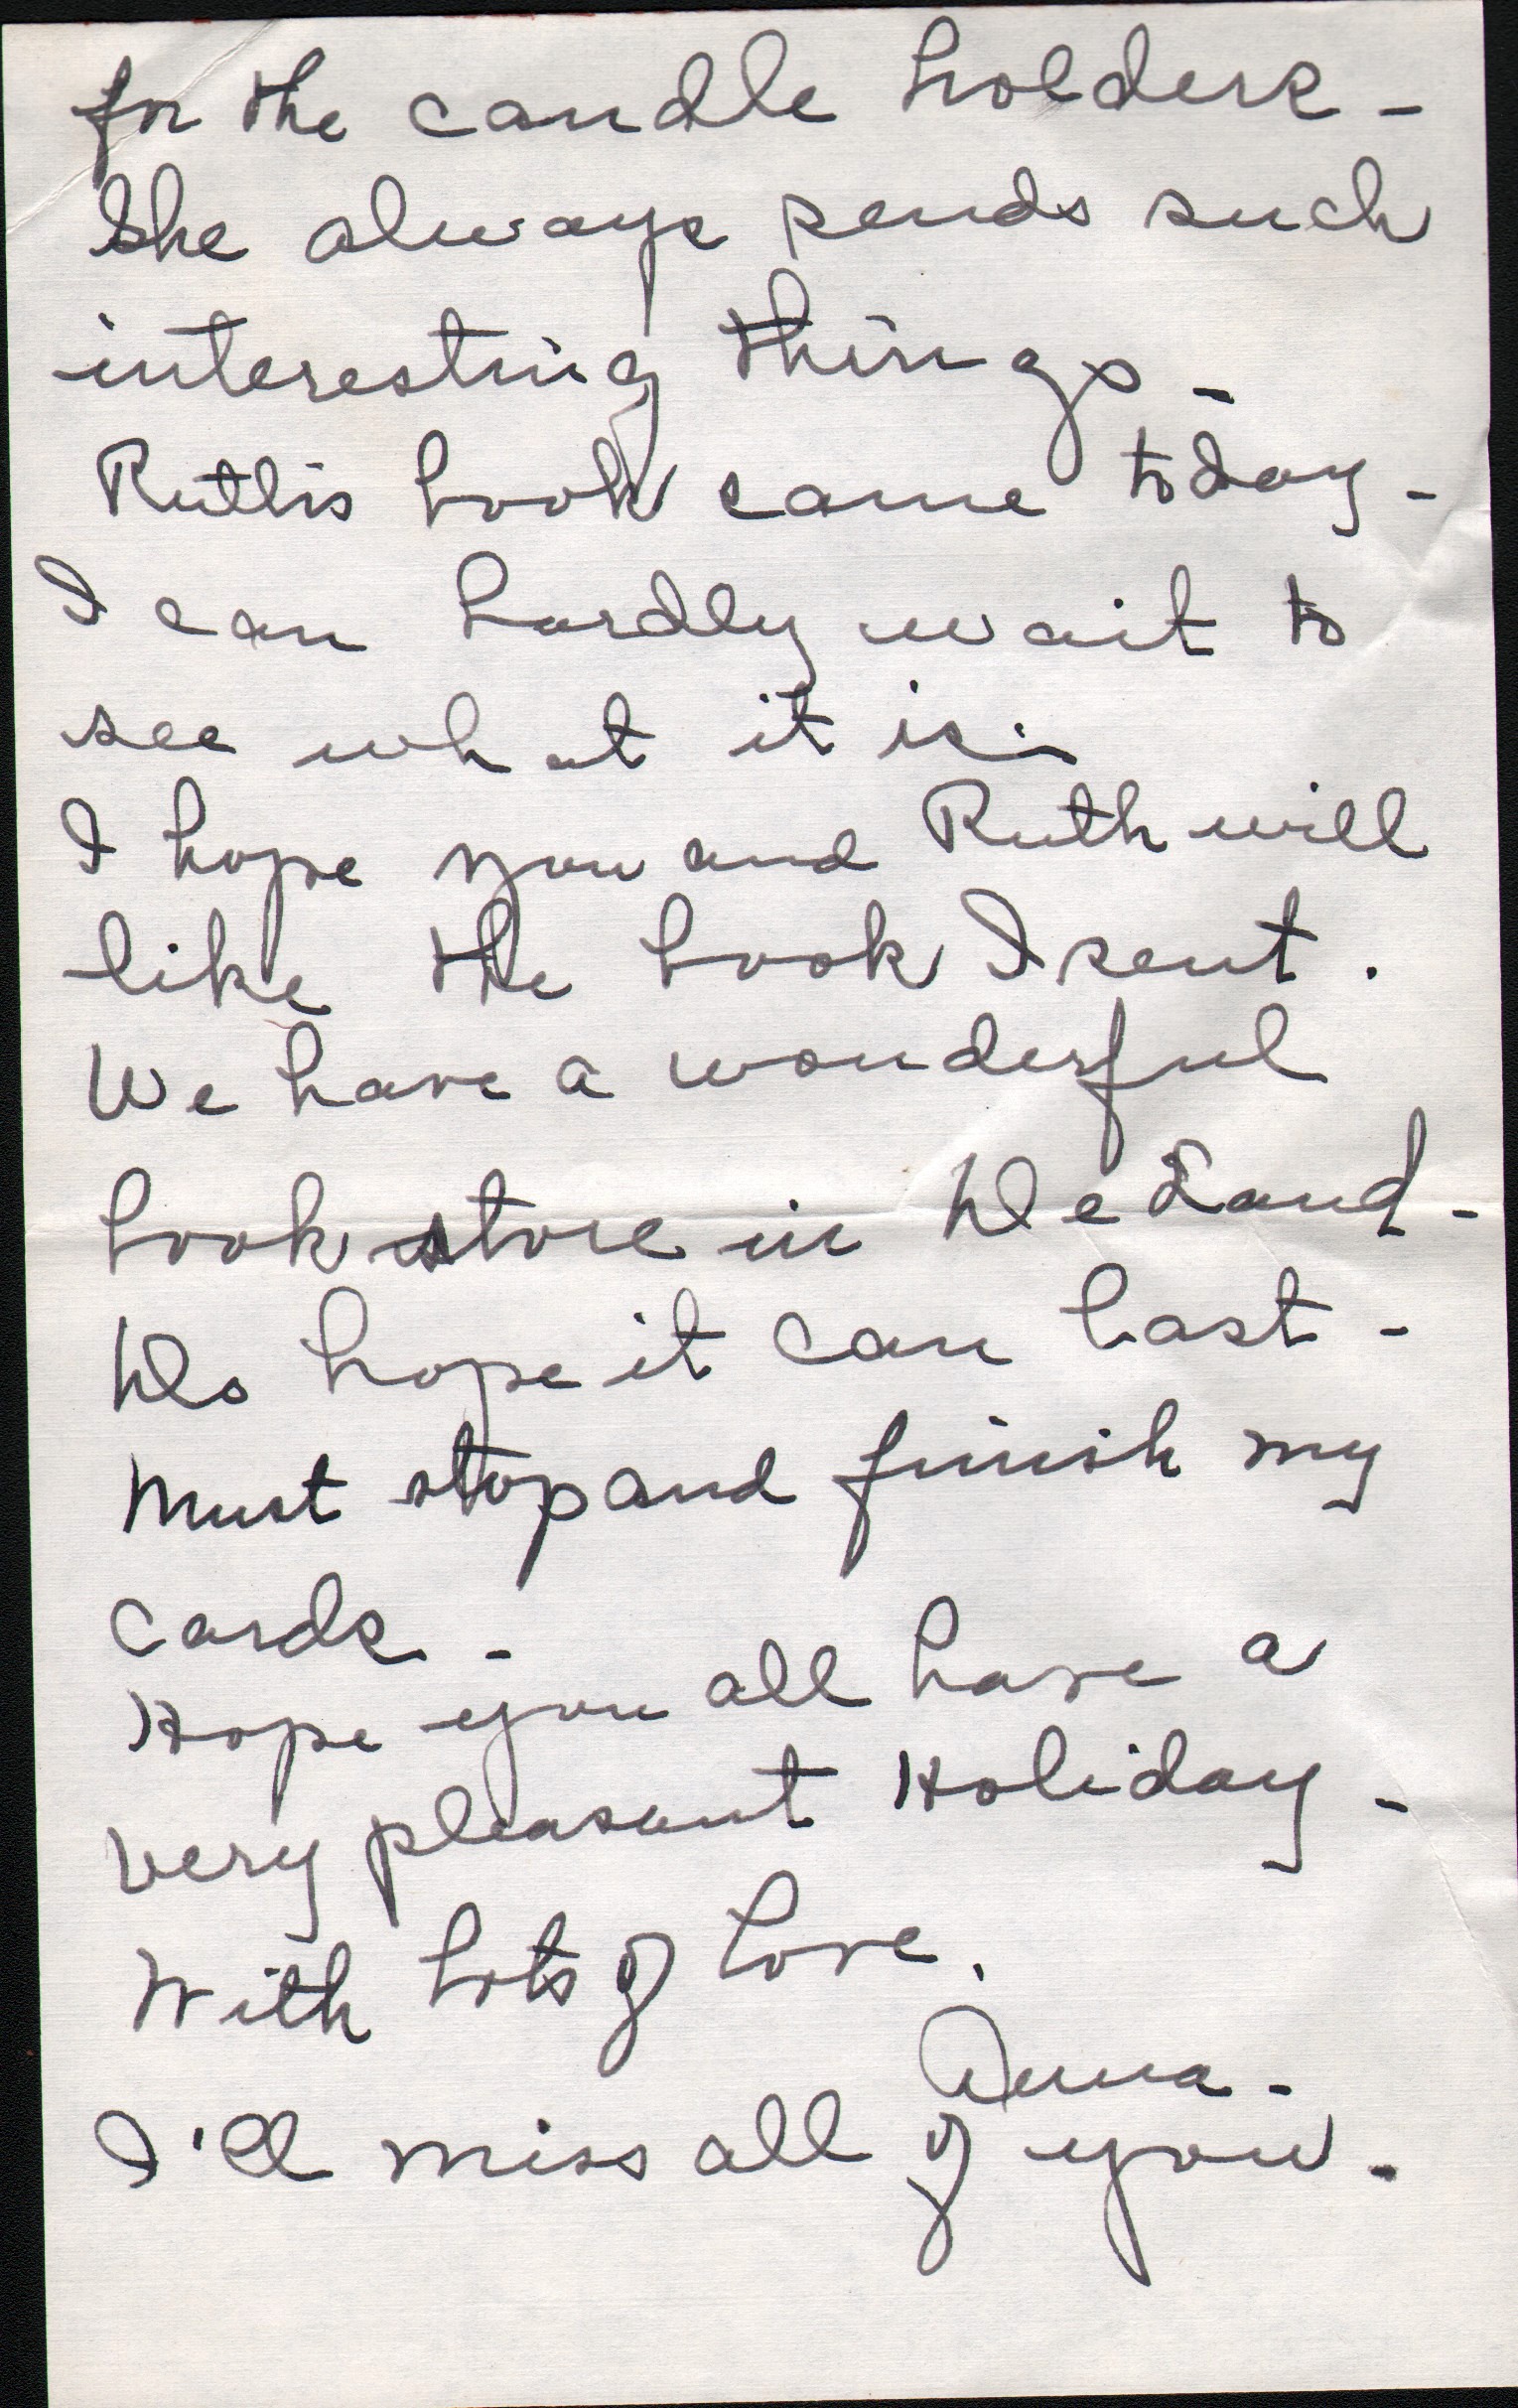 for the candle holders -
She always sends such
interesting things -
Ruth's book came today -
I can hardly wait to
see what it is. -
I hope you and Ruth will
like the book I sent.
We have a wonderful
book store in DeLand -
Do hope it can last -
Must stop and finish my
cards. -
Hope you all have a
very pleasant Holiday -
With lots of love,
Anna -
I'll miss all of you.